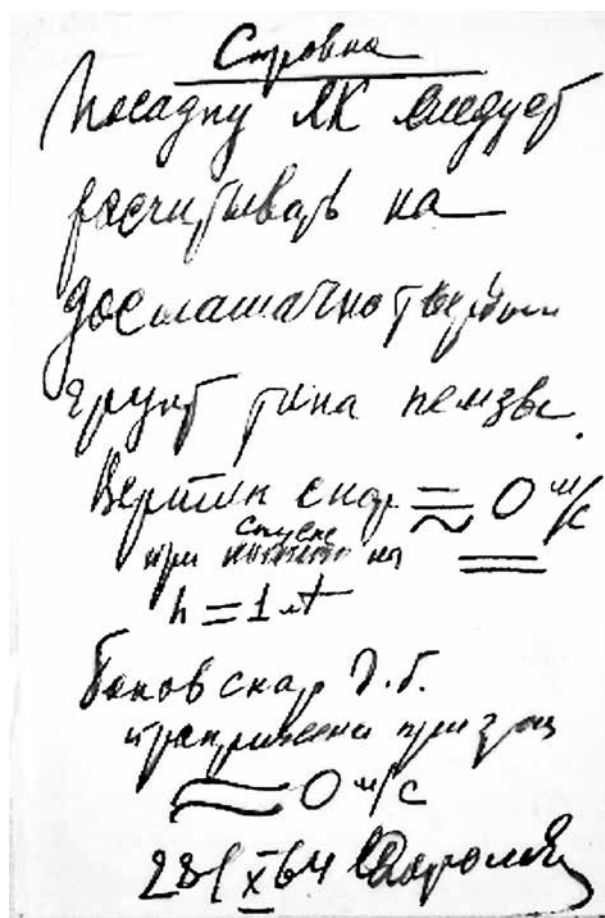 Справка
Посадку ЛК следует
расчитывать на
достаточно твердый
грунт типа пемзы.
Вертик скор ≈ 0 м/с
спуске
при на
h = 1 м
Боков скор д.б.
при
≈ 0 м/с
28/X 64 Королев